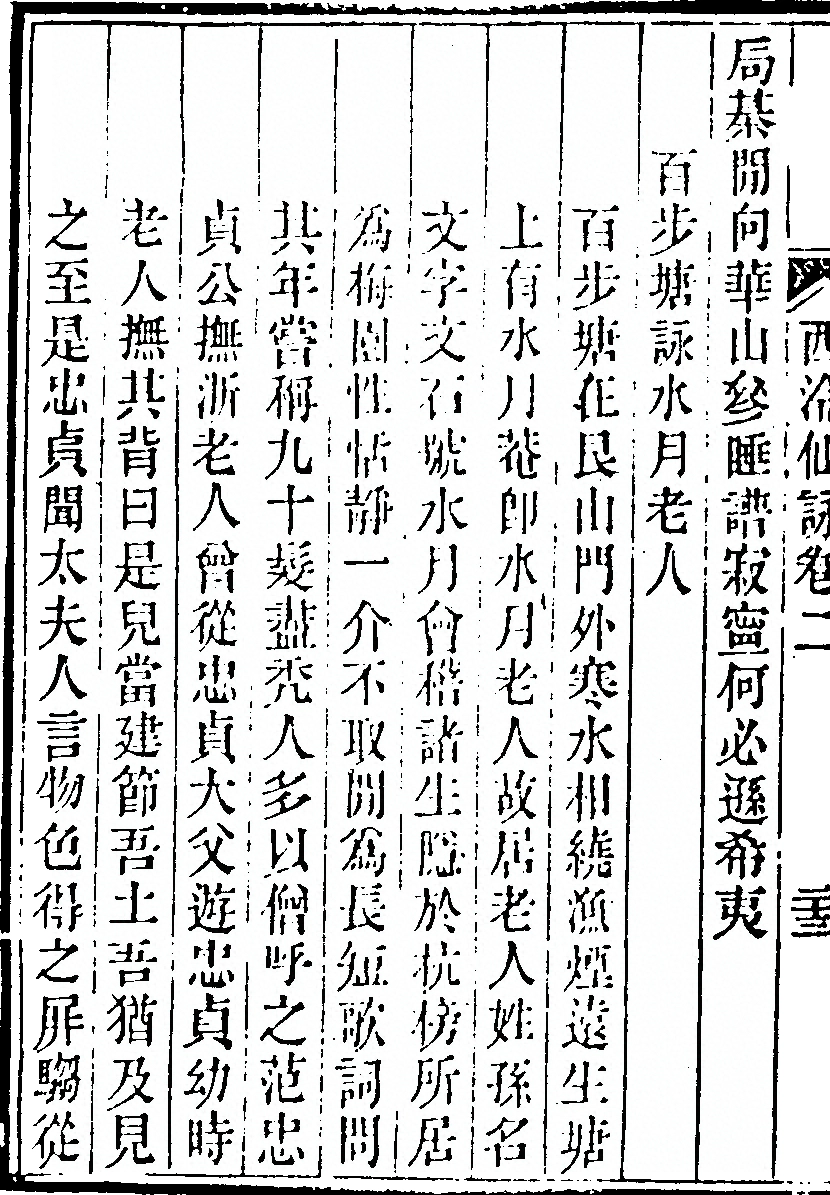 西泠仙詠卷二
二十三
局棊閒向華山參睡譜寂寞何必遜希夷
百步塘詠水月老人
百步塘在艮山門外寒水相繞漁煙遠生塘
上有水月菴卽水月老人故居老人姓孫名
文字文石號水月會稽諸生隱於杭傍所居
爲梅園性恬靜一介不取閒爲長短歌詞問
其年嘗稱九十髮盡禿人多以僧呼之范忠
貞公撫浙老人曾從忠貞大父遊忠貞幼時
老人撫其背曰是兒當建節吾土吾猶及見
之至是忠貞聞太夫人言物色得之屏騶從